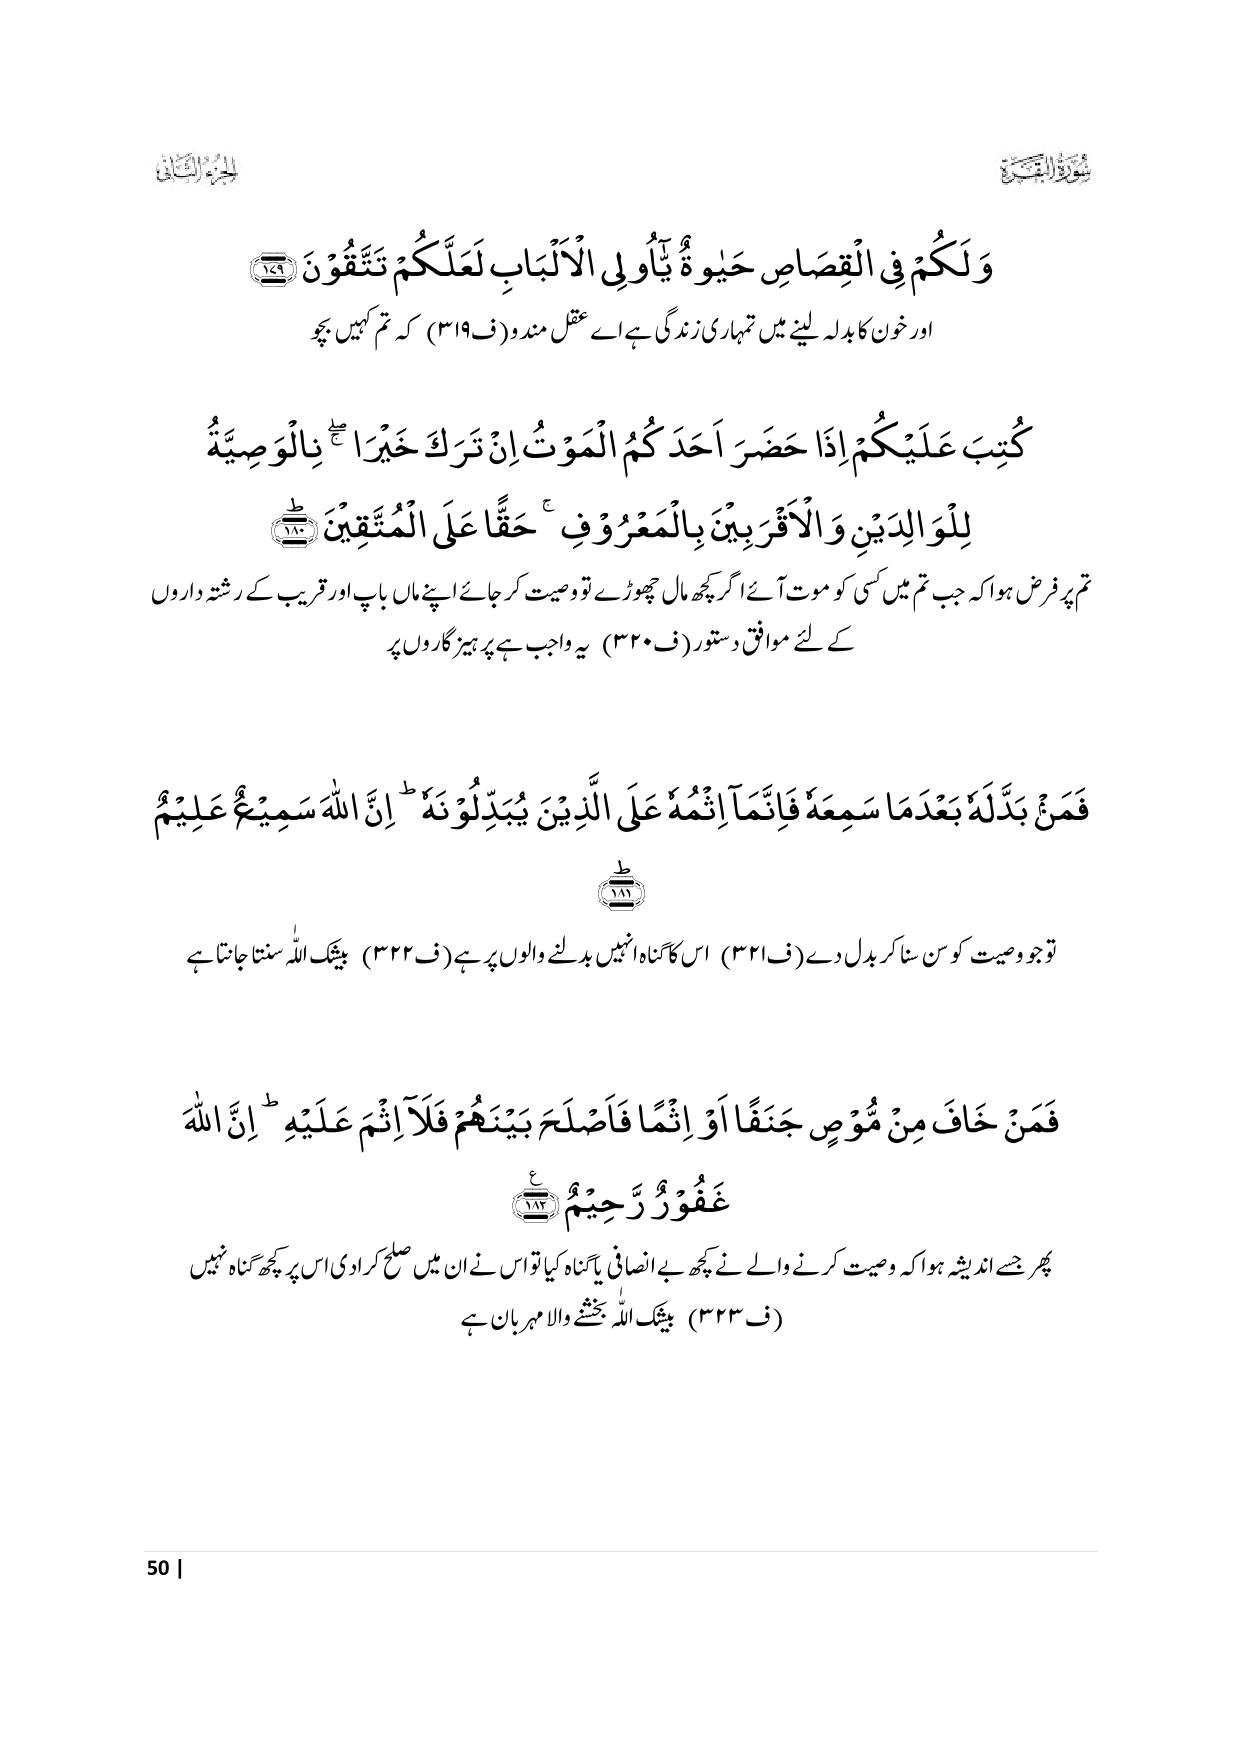 سُوْرَةُ الْبَقَـرَة
الجُزءُ الثَّانِی
وَ لَكُمْ فِی الْقِصَاصِ حَیٰوةٌ یّٰۤاُولِی الْاَلْبَابِ لَعَلَّكُمْ تَتَّقُوْنَ ﴿۱۷۹﴾
اور خون کا بدلہ لینے میں تمہاری زندگی ہے اے عقل مندو (ف۳۱۹) کہ تم کہیں بچو
كُتِبَ عَلَیْكُمْ اِذَا حَضَرَ اَحَدَكُمُ الْمَوْتُ اِنْ تَرَكَ خَیْرَا ۖۚ ِۨالْوَصِیَّةُ
لِلْوَالِدَیْنِ وَ الْاَقْرَبِیْنَ بِالْمَعْرُوْفِ ۚ حَقًّا عَلَی الْمُتَّقِیْنَ ﴿۱۸۰﴾ؕ
تم پر فرض ہوا کہ جب تم میں کسی کو موت آئے اگر کچھ مال چھوڑے تو وصیت کر جائے اپنے ماں باپ اور قریب کے رشتہ داروں
کے لئے موافق دستور (ف۳۲۰) یہ واجب ہے پرہیزگاروں پر
فَمَنْۢ بَدَّلَهٗ بَعْدَمَا سَمِعَهٗ فَاِنَّمَاۤ اِثْمُهٗ عَلَی الَّذِیْنَ یُبَدِّلُوْنَهٗ ؕ اِنَّ اللّٰهَ سَمِیْعٌ عَلِیْمٌ
﴿۱۸۱﴾ؕ
تو جو وصیت کو سن سنا کر بدل دے (ف۳۲۱) اس کا گناہ انہیں بدلنے والوں پر ہے (ف۳۲۲) بیشک اللّٰہ سنتا جانتا ہے
فَمَنْ خَافَ مِنْ مُّوْصٍ جَنَفًا اَوْ اِثْمًا فَاَصْلَحَ بَیْنَهُمْ فَلَاۤ اِثْمَ عَلَیْهِ ؕ اِنَّ اللّٰهَ
غَفُوْرٌ رَّحِیْمٌ ﴿۱۸۲﴾ع
پھر جسے اندیشہ ہوا کہ وصیت کرنے والے نے کچھ بے انصافی یا گناہ کیا تو اس نے ان میں صلح کرا دی اس پر کچھ گناہ نہیں
(ف۳۲۳) بیشک اللّٰہ بخشنے والا مہربان ہے
50 |